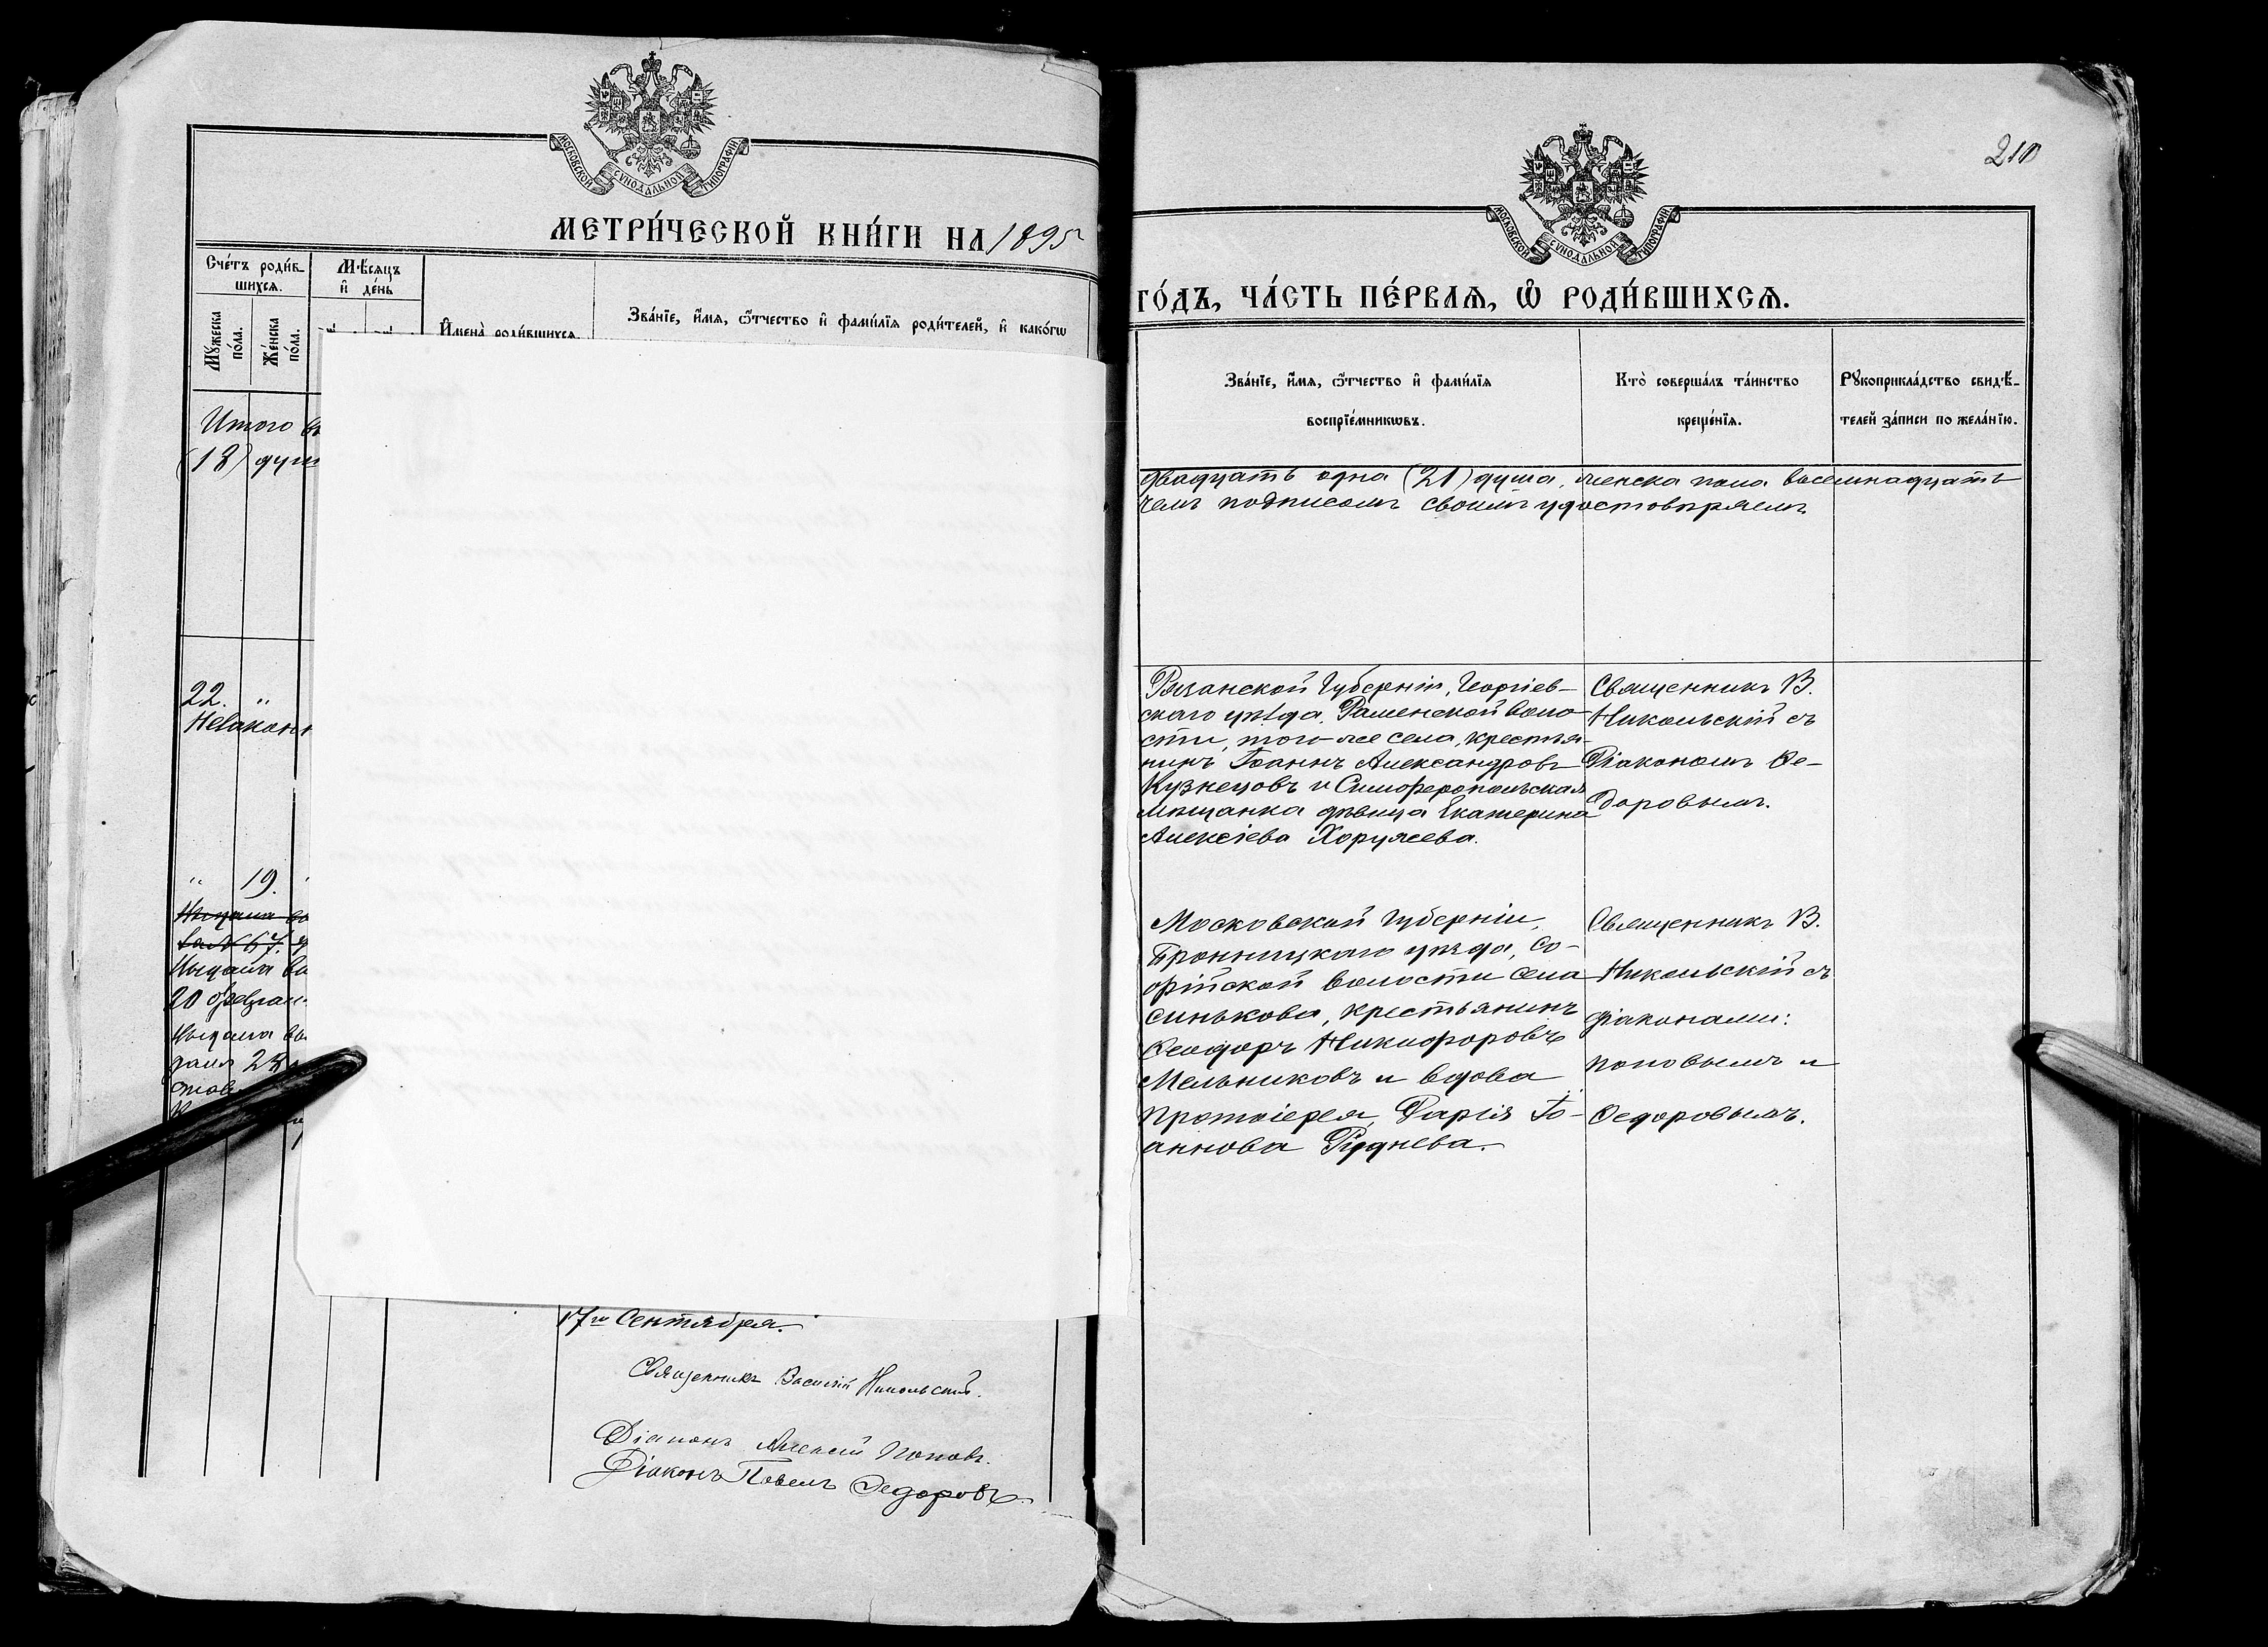 МОСКОВСКОЙ СѴНОДАЛЬНОЙ ТИПОГРАФІИ
МЕТРИ́ЧЕСКОЙ КНИ́ГИ НА 1895
Сче́тъ роди́в-
шихсѧ.
Мꙋ́жеска
по́ла.
Же́нска
по́ла.
Мѣ́сяцъ
и҆ де́нь
И҆мена̀ роди́вшихсѧ.
Зва́нїе, и҆́мѧ, ѻ҆́тчество и҆ фами́лїѧ роди́телей, и҆ како́гѡ
Итого
(18) душ
22. "
Незакон
" 19.
20 феврал
17го Сентября.
Священникъ Василій Никольскій.
Діаконъ Алексій Поповъ.
Діаконъ Павелъ Ѳедоровъ
210
МОСКОВСКОЙ СѴНОДАЛЬНОЙ ТИПОГРАФІИ
ГО́ДЪ, ЧА́СТЬ ПЕ́РВАѦ, Ѽ РОДИ́ВШИХСѦ.
Зва́нїе, и҆́мѧ, ѻ҆́тчество и҆ фами́лїѧ
воспрїе́мникѡвъ.
Кто̀ соверша́лъ та́инство
креще́нїѧ.
Рꙋкоприкла́дство свидѣ́-
телей за́писи по жела́нїю.
двадцать одна (21) душа, женска пола восемнадцать
чемъ подписомъ своимъ удостовѣряемъ
Рязанской Губерніи, Георгіев-
скаго уѣзда, Раменской воло-
сти, того-же села, крестья-
нинъ Іоаннъ Александровъ
Кузнецовъ и Симферопольская
мѣщанка дѣвица Екатерина
Алексіева Хоружева.
Священникъ В.
Никольскій съ
Діакономъ Ѳе-
доровымъ.
Московской Губерніи,
Бронницкаго уѣзда, Со-
фійской волости села
Синькова, крестьянинъ
Ѳеодоръ Никифоровъ
Мельниковъ и вдова
Протоіерея, Дарія Іо-
аннова Руднева.
Священникъ В.
Никольскій съ
діаконами:
Поповымъ и
Ѳедоровымъ.